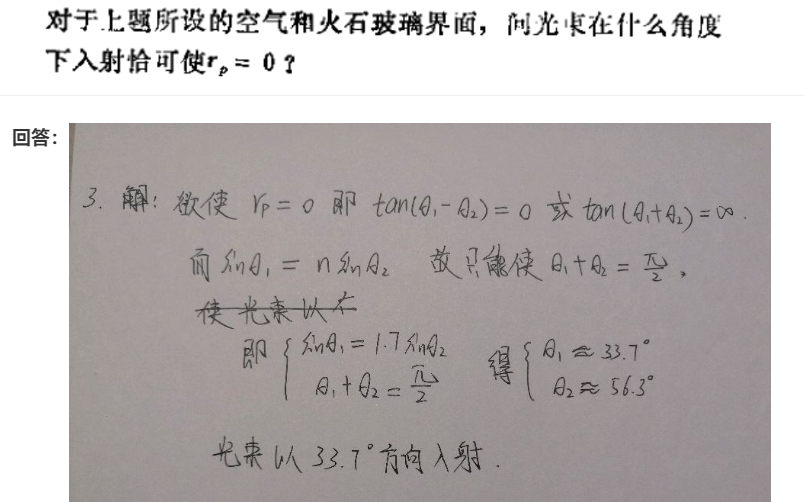 对于上题所设的空气和火石玻璃界面，问光束在什么角度
下入射恰可使rₚ = 0？
回答：
3. 解：欲使 rₚ = 0 即 tan(θ₁-θ₂)=0 或 tan(θ₁+θ₂)=∞.
而 sinθ₁ = n sinθ₂ 故只能使 θ₁+θ₂ = π/2，
使光束以在
即 { sinθ₁ = 1.7 sinθ₂ 得 { θ₁ ≈ 33.7°
θ₁+θ₂ = π/2 θ₂ ≈ 56.3°
光束以 33.7° 方向入射.